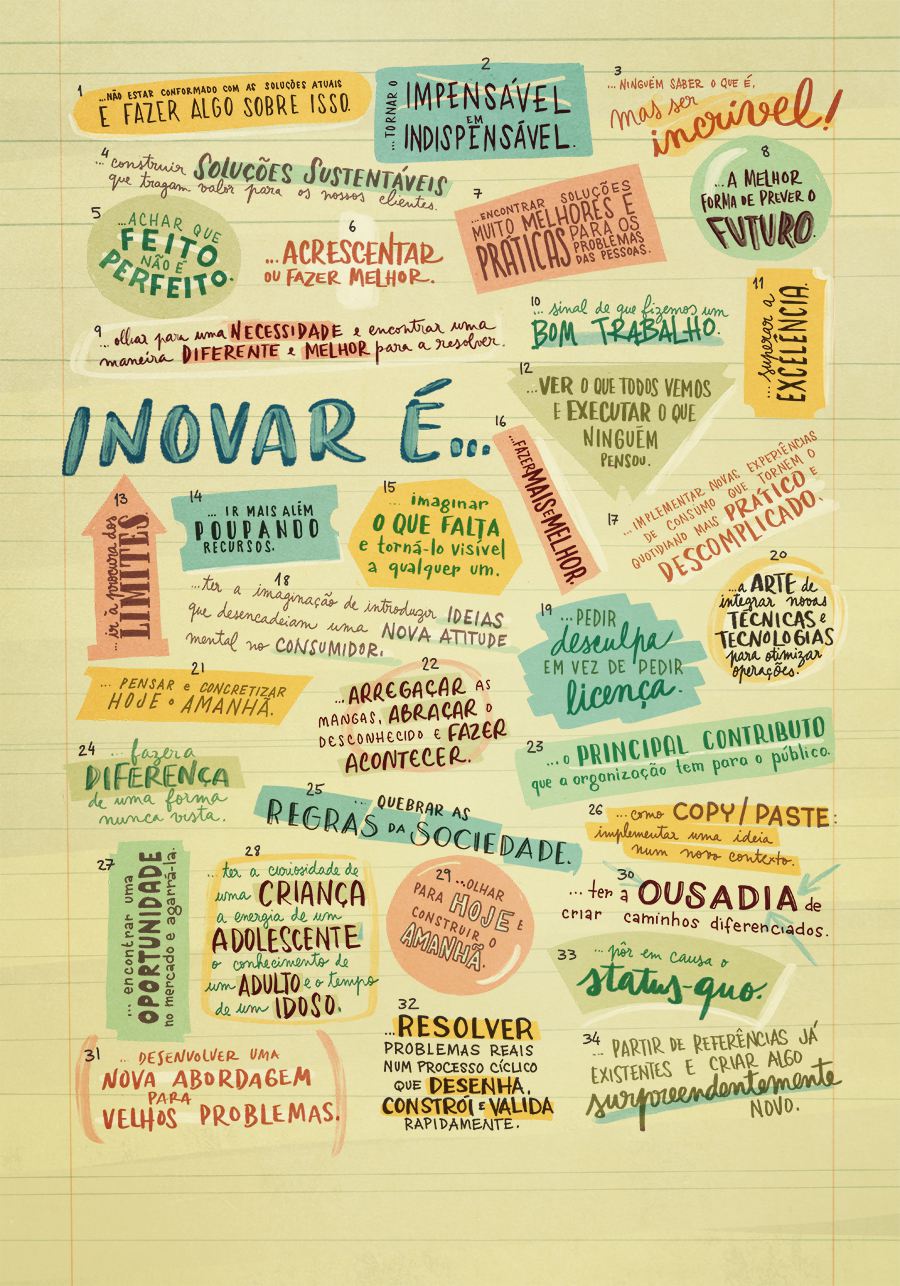 1
...NÃO ESTAR CONFORMADO COM AS SOLUÇÕES ATUAIS
E FAZER ALGO SOBRE ISSO.
2
...TORNAR O
IMPENSÁVEL
EM
INDISPENSÁVEL.
3
...NINGUÉM SABER O QUE É,
mas ser
incrível!
4
...construir SOLUÇÕES SUSTENTÁVEIS
que tragam valor para os nossos clientes.
5
...ACHAR QUE
FEITO
NÃO É
PERFEITO.
6
...ACRESCENTAR
OU FAZER MELHOR.
7
...ENCONTRAR SOLUÇÕES
MUITO MELHORES E
PRÁTICAS PARA OS
PROBLEMAS
DAS PESSOAS.
8
...A MELHOR
FORMA DE PREVER O
FUTURO.
9
...olhar para uma NECESSIDADE e encontrar uma
maneira DIFERENTE e MELHOR para a resolver.
10
... sinal de que fizemos um
BOM TRABALHO.
11
... superar a
EXCELÊNCIA.
12
...VER O QUE TODOS VEMOS
E EXECUTAR O QUE
NINGUÉM
PENSOU.
INOVAR É...
13
...ir à procura dos
LIMITES
14
... IR MAIS ALÉM
POUPANDO
RECURSOS.
15
... imaginar
O QUE FALTA
e torná-lo visível
a qualquer um.
16
...FAZER MAIS E MELHOR.
17
...IMPLEMENTAR NOVAS EXPERIÊNCIAS
DE CONSUMO QUE TORNEM O
QUOTIDIANO MAIS PRÁTICO E
DESCOMPLICADO.
18
...ter a imaginação de introduzir IDEIAS
que desencadeiam uma NOVA ATITUDE
mental no CONSUMIDOR.
19
...PEDIR
desculpa
EM VEZ DE PEDIR
licença.
20
...a ARTE de
integrar novas
TÉCNICAS e
TECNOLOGIAS
para otimizar
operações.
21
... PENSAR e CONCRETIZAR
HOJE o AMANHÃ.
22
...ARREGAÇAR AS
MANGAS, ABRAÇAR O
DESCONHECIDO E FAZER
ACONTECER.
23
...o PRINCIPAL CONTRIBUTO
que a organização tem para o público.
24
... fazer a
DIFERENÇA
de uma forma
nunca vista.
25
... QUEBRAR AS
REGRAS DA SOCIEDADE.
26
...como COPY/PASTE:
implementar uma ideia
num novo contexto.
27
... encontrar uma
OPORTUNIDADE
no mercado e agarrá-la.
28
...ter a curiosidade de
uma CRIANÇA
a energia de um
ADOLESCENTE
o conhecimento de
um ADULTO e o tempo
de um IDOSO.
29
...OLHAR
PARA HOJE E
CONSTRUIR O
AMANHÃ.
30
... ter a OUSADIA de
criar caminhos diferenciados.
31
... DESENVOLVER UMA
NOVA ABORDAGEM
PARA
VELHOS PROBLEMAS.
32
...RESOLVER
PROBLEMAS REAIS
NUM PROCESSO CÍCLICO
QUE DESENHA,
CONSTRÓI E VALIDA
RAPIDAMENTE.
33
... pôr em causa o
status-quo.
34
... PARTIR DE REFERÊNCIAS JÁ
EXISTENTES E CRIAR ALGO
surpreendentemente
NOVO.